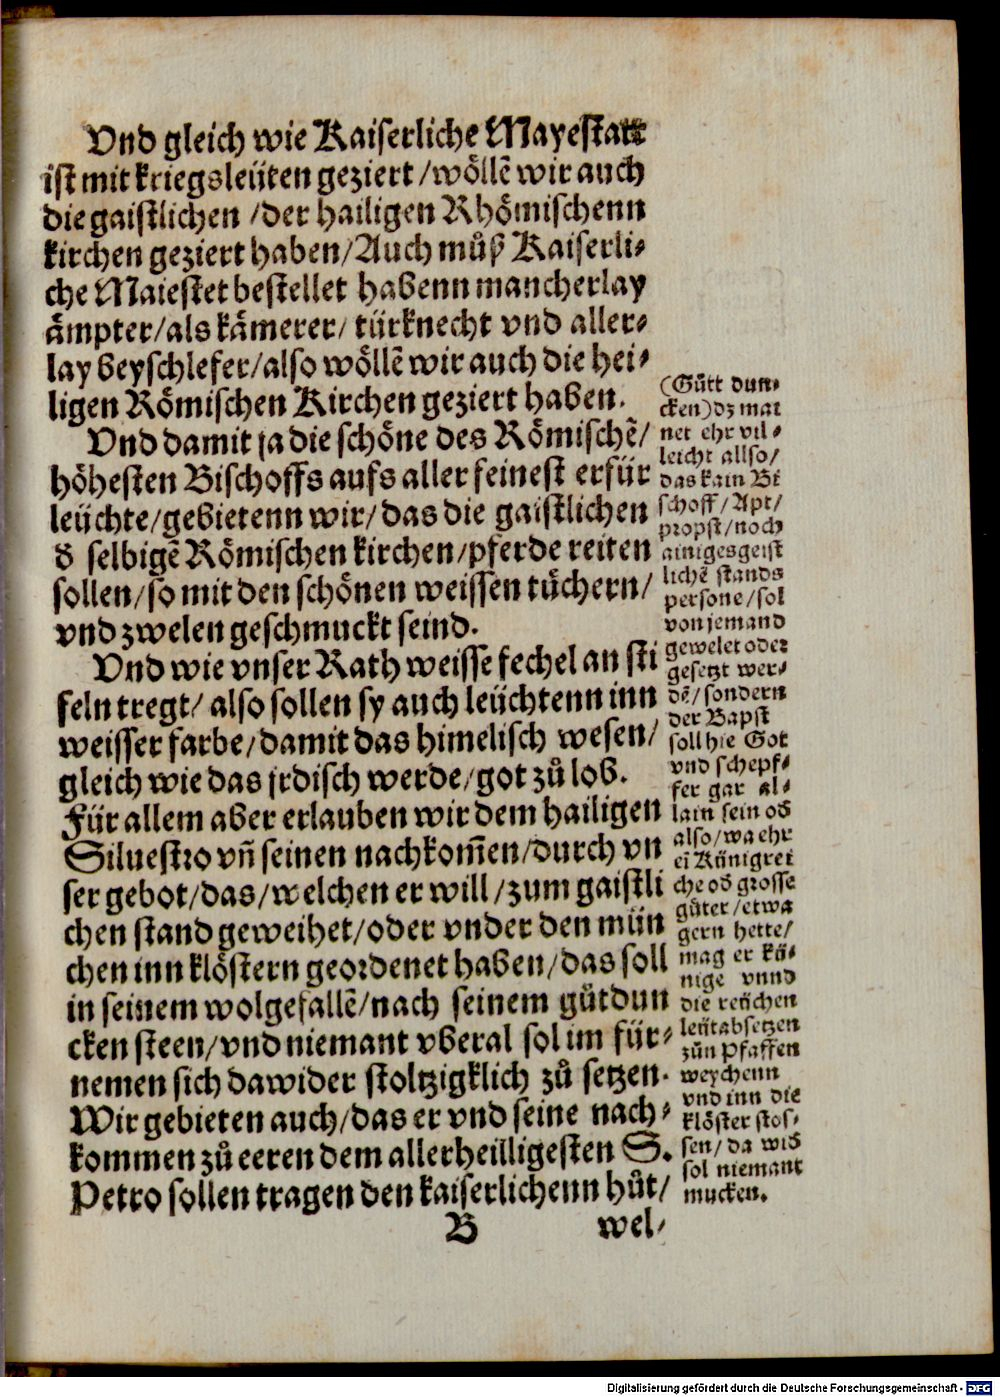 Vnd gleich wie Kaiserliche Mayestatt
ist mit kriegsleüten geziert/wöllē wir auch
die gaistlichen /der hailigen Rhömischenn
kirchen geziert haben/Auch můß Kaiserli-
che Maiestet bestellet habenn mancherlay
ämpter/als kämerer/ türknecht vnd aller-
lay beyschlefer/also wöllē wir auch die hei-
ligen Römischen Kirchen geziert haben.
Vnd damit ja die schöne des Römischē/
höhesten Bischoffs aufs aller feinest erfür
leüchte/gebietenn wir/das die gaistlichen
d̄ selbigē Römischen kirchen/pferde reiten
sollen/so mit den schönen weissen tüchern/
vnd zwelen geschmuckt seind.
Vnd wie vnser Rath weisse fechel an sti
feln tregt/ also sollen sy auch leüchtenn inn
weisser farbe/damit das himelisch wesen/
gleich wie das jrdisch werde/got zů lob.
Für allem aber erlauben wir dem hailigen
Siluestro vn̄ seinen nachkom̄en/durch vn
ser gebot/das/welchen er will/zum gaistli
chen stand geweihet/oder vnder den mün
chen inn klöstern geordenet haben/das soll
in seinem wolgefallē/nach seinem gůtdun
cken steen/vnd niemant vberal sol im für-
nemen sich dawider stoltzigklich zů setzen.
Wir gebieten auch/das er vnd seine nach-
kommen zů eeren dem allerheilligesten S.
Petro sollen tragen den kaiserlichenn hůt/
B wel-
(Gůtt dun-
cken)dz mai
net ehr vil-
leicht allso/
das kain Bi
schoff/Apt/
propst/noch
ainiges geist
lichē stands
persone/sol
von jemand
gewelet oder
gesetzt wer-
dē/sondern
der Bapst
soll hie Got
vnd schepf-
fer gar al-
lain sein od̄
also/wa ehr
ei̅ Künigrei
che od̄ grosse
güter/etwa
gern hette/
mag er kü-
nige vnnd
die reüchen
leüt absetzen
zůn Pfaffen
weychenn
vnd inn die
klöster stos-
sen/da wid̄
sol niemant
mucken.
Digitalisierung gefördert durch die Deutsche Forschungsgemeinschaft - DFG